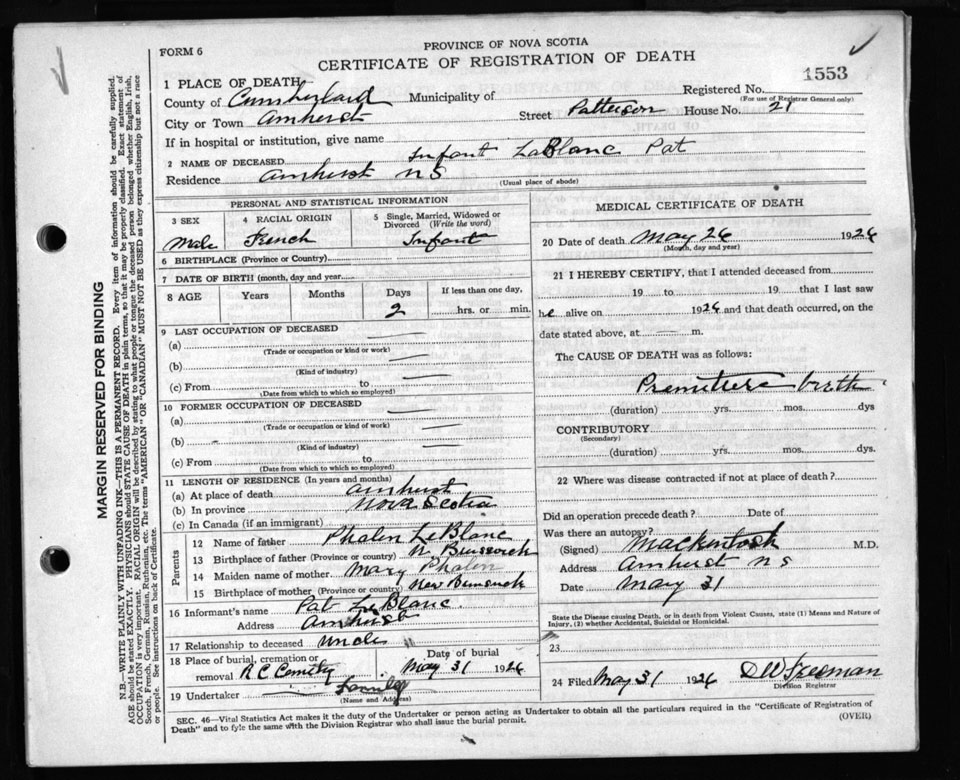 PROVINCE OF NOVA SCOTIA
FORM 6
CERTIFICATE OF REGISTRATION OF DEATH
1553
1 PLACE OF DEATH
Registered No.
(For use of Registrar General only)
County of Cumberland Municipality of
City or Town Amherst Street Patterson House No. 21
If in hospital or institution, give name
2 NAME OF DECEASED Infant LaBlanc Pat
Residence Amherst NS (Usual place of abode)
PERSONAL AND STATISTICAL INFORMATION
3 SEX 4 RACIAL ORIGIN 5 Single, Married, Widowed or Divorced (Write the word)
Male French Infant
6 BIRTHPLACE (Province or Country)
7 DATE OF BIRTH (month, day and year)
8 AGE Years Months Days If less than one day,
2 hrs. or min.
9 LAST OCCUPATION OF DECEASED
(a)
(Trade or occupation or kind or work)
(b)
(Kind of industry)
(c) From to
(Date from which to which so employed)
10 FORMER OCCUPATION OF DECEASED
(a)
(Trade or occupation or kind of work)
(b)
(Kind of industry)
(c) From to
(Date from which to which so employed)
11 LENGTH OF RESIDENCE (In years and months)
(a) At place of death Amherst
(b) In province Nova Scotia
(c) In Canada (if an immigrant)
Parents
12 Name of father Phalen LeBlanc
13 Birthplace of father (Province or country) N
14 Maiden name of mother Mary Phalen
15 Birthplace of mother (Province or country) New
16 Informant's name Pat LeBlanc
Address Amherst
17 Relationship to deceased Uncle
18 Place of burial, cremation or removal R C Cemetry Date of burial May 31 1926
19 Undertaker Family
(Name and Address)
MEDICAL CERTIFICATE OF DEATH
20 Date of death May 26 1926
(Month, day and year)
21 I HEREBY CERTIFY, that I attended deceased from
19 to 19 that I last saw
he alive on 1926 and that death occurred, on the
date stated above, at m.
The CAUSE OF DEATH was as follows:
birth
(duration) yrs. mos. dys
CONTRIBUTORY
(Secondary)
(duration) yrs. mos. dys.
22 Where was disease contracted if not at place of death?
Did an operation precede death? Date of
Was there an autopsy?
(Signed) Mackintosh M.D.
Address Amherst NS
Date May 31
State the Disease causing Death, or in death from Violent Causes, state (1) Means and Nature of
Injury, (2) whether Accidental, Suicidal or Homicidal.
23
24 Filed May 31 1926 D W Freeman
Division Registrar
SEC. 46—Vital Statistics Act makes it the duty of the Undertaker or person acting as Undertaker to obtain all the particulars required in the "Certificate of Registration of
Death" and to fyle the same with the Division Registrar who shall issue the burial permit.
(OVER)
MARGIN RESERVED FOR BINDING
N.B.—WRITE PLAINLY WITH UNFADING INK—THIS IS A PERMANENT RECORD. Every item of information should be carefully supplied.
AGE should be stated EXACTLY. PHYSICIANS should STATE CAUSE OF DEATH in plain terms, so that it may be properly classified. Exact statement of
OCCUPATION is very important. RACIAL ORIGIN will be described by stating to what people or tongue the deceased person belonged whether English, Irish,
Scotch, French, German, Russian, Ruthenian, etc. The terms "AMERICAN" OR "CANADIAN" MUST NOT BE USED as they express citizenship but not a race
or people. See instructions on back of Certificate.